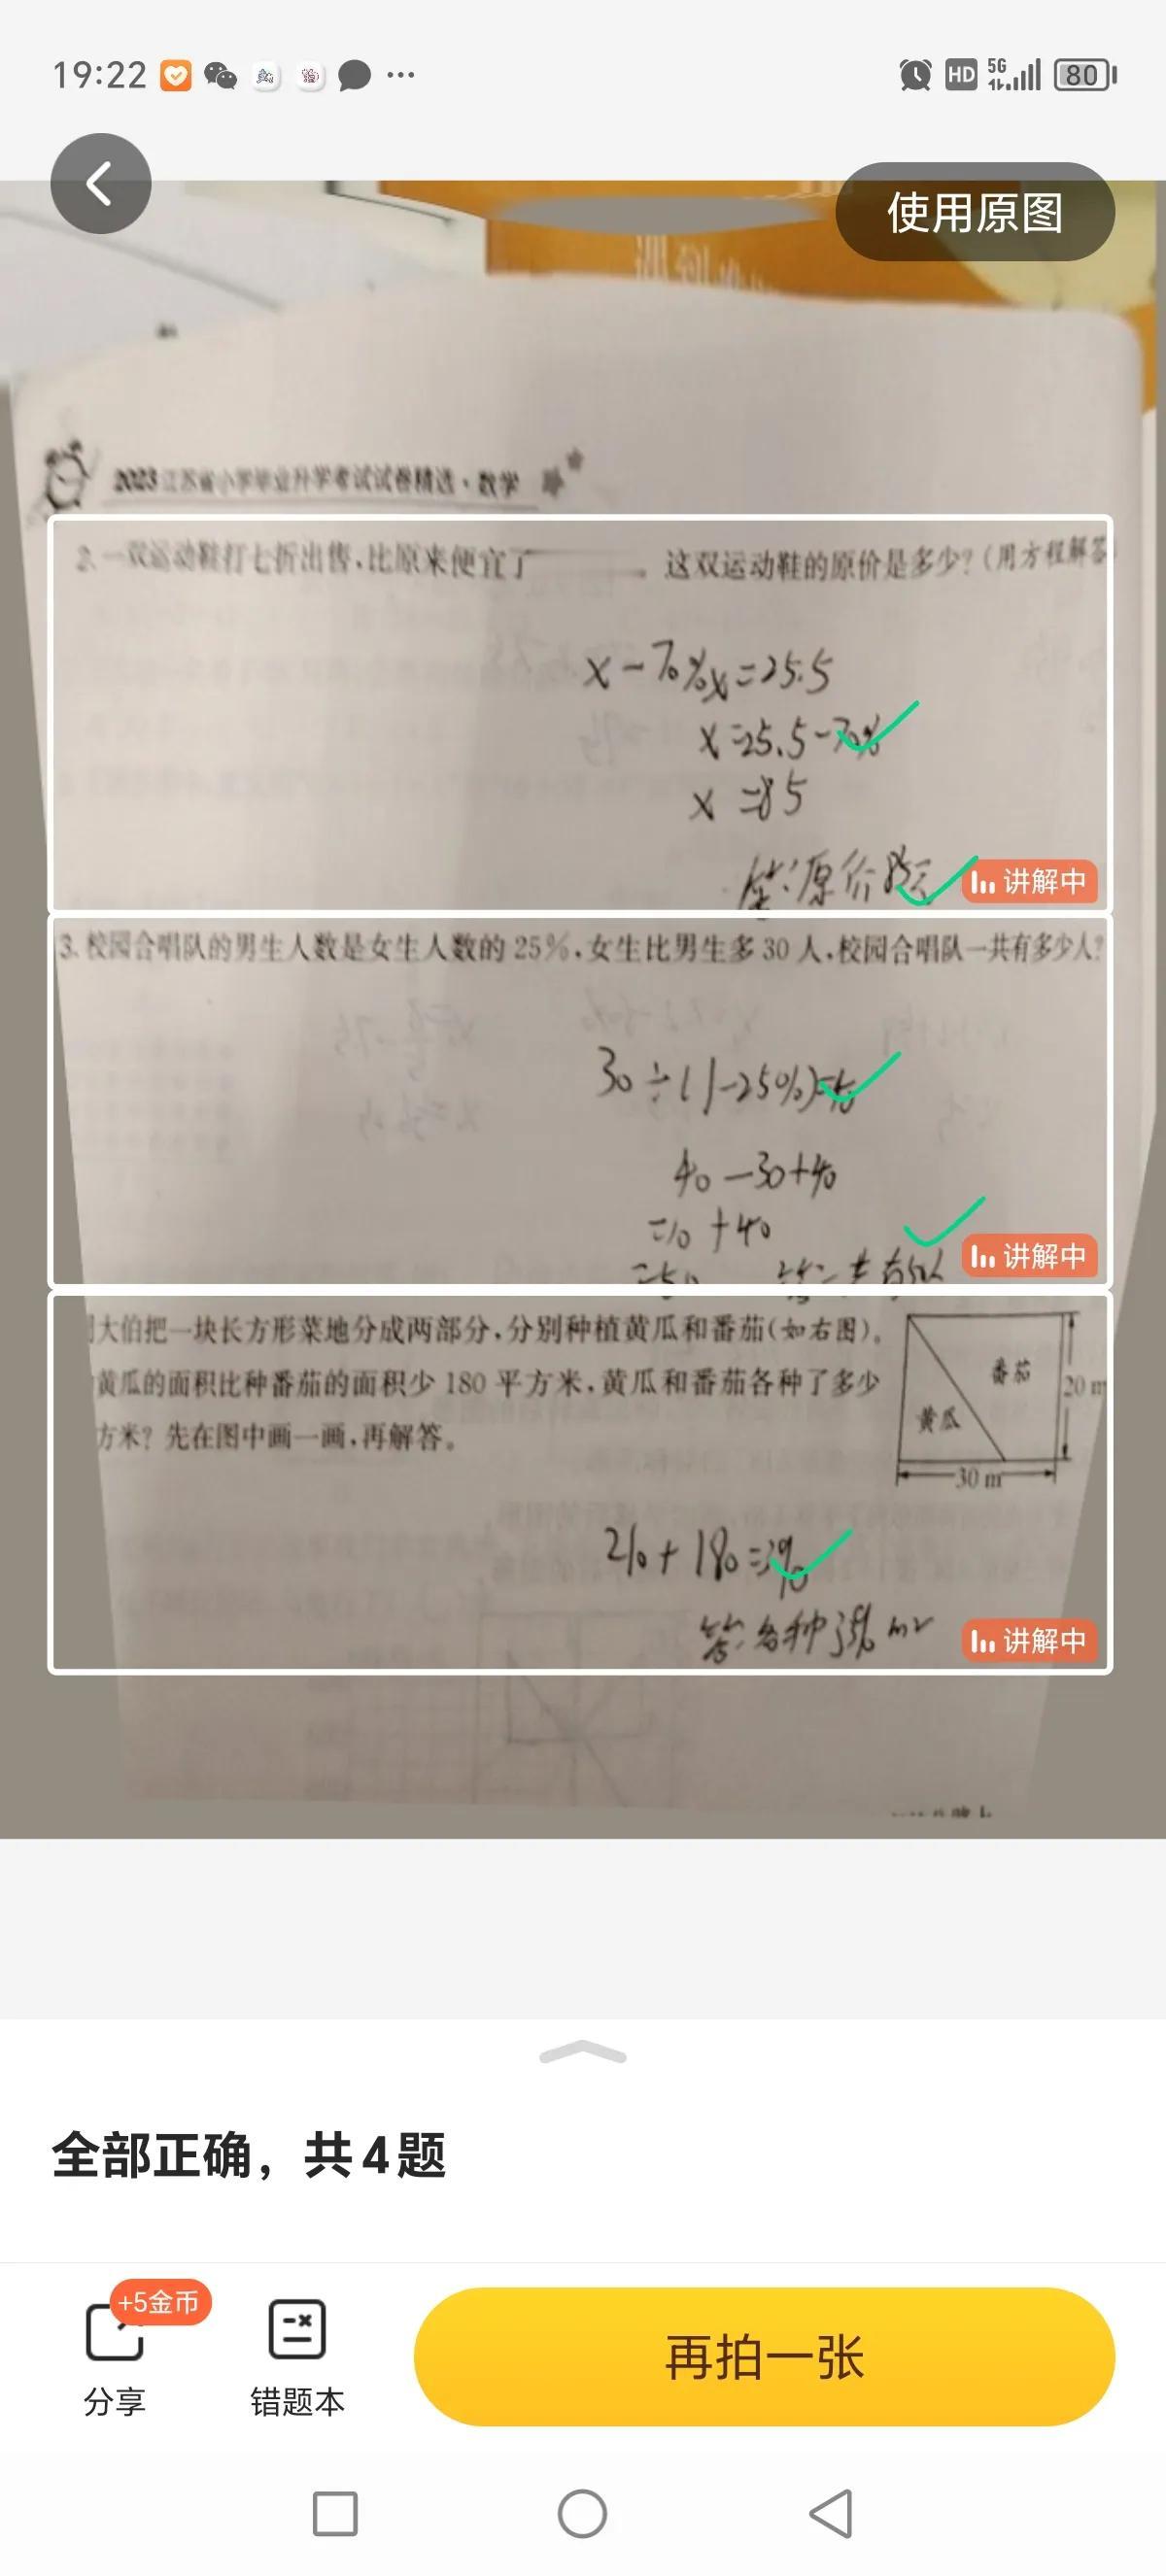 19:22
HD
5G
80
使用原图
2023江苏省小学毕业升学考试试卷精选·数学
2.一双运动鞋打七折出售,比原来便宜了 。这双运动鞋的原价是多少?(用方程解答
x-70%x=25.5
x=25.5-70%
x=85
答:原价85元
讲解中
3.校园合唱队的男生人数是女生人数的25%,女生比男生多30人,校园合唱队一共有多少人?
30÷(1-25%)=40
40-30+40
=10+40
=50
讲解中
大伯把一块长方形菜地分成两部分,分别种植黄瓜和番茄(如右图)。
黄瓜的面积比种番茄的面积少180平方米,黄瓜和番茄各种了多少
方米?先在图中画一画,再解答。
番茄
20 m
黄瓜
30 m
210+180=390
答:各种 m²
讲解中
全部正确，共4题
+5金币
分享
错题本
再拍一张